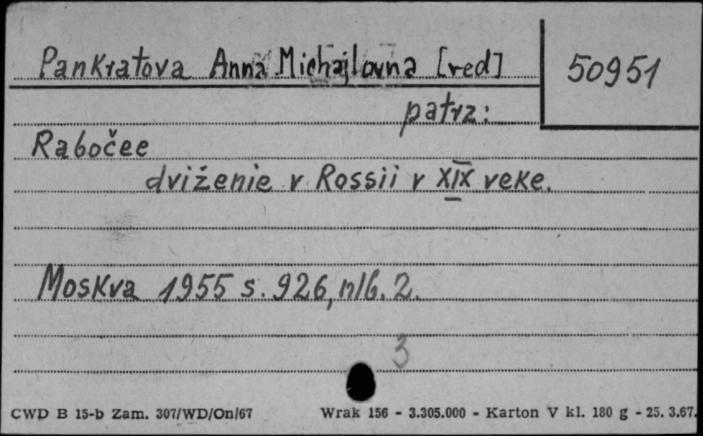 Pankratova Anna Michajlovna [red]
50951
patrz:
Rabočee
dviženie v Rossii v XIX veke.
Moskva 1955 s. 926, nlb. 2.
3
CWD B 15-b Zam. 307/WD/On/67
Wrak 156 - 3.305.000 - Karton V kl. 180 g - 25. 3.67.